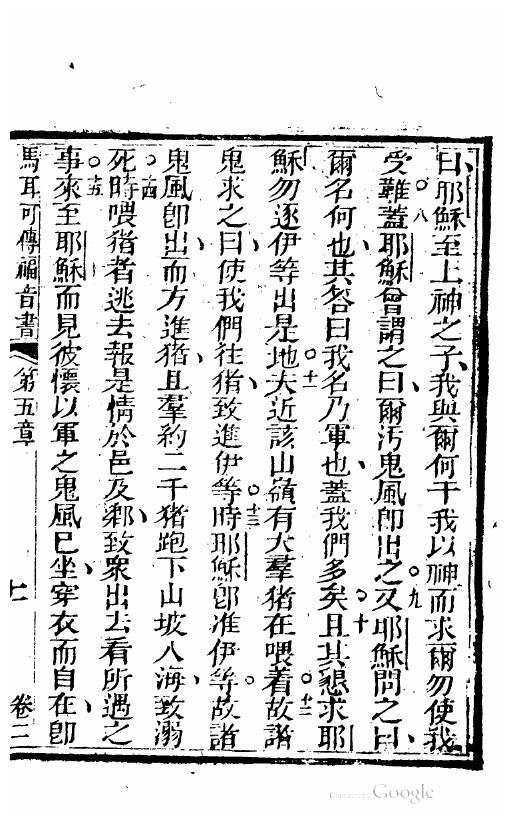 曰耶穌至上神之子我與爾何干我以神而求爾勿使我
受難○八蓋耶穌曾謂之曰爾汚鬼風卽出之○九又耶穌問之曰
爾名何也其答曰我名乃軍也蓋我們多矣○十且其懇求耶
穌勿逐伊等出是地○十一大近該山嶺有大羣猪在喂着○十二故諸
鬼求之曰使我們往猪致進伊等○十三時耶穌卽准伊等故諸
鬼風卽出而方進猪且羣約二千猪跑下山坡入海致溺
死○十四時喂猪者逃去報是情於邑及鄉致衆出去看所遇之
事○十五來至耶穌而見彼懷以軍之鬼風已坐穿衣而自在卽
馬耳可傳福音書 第五章 七 卷二
Digitized by Google